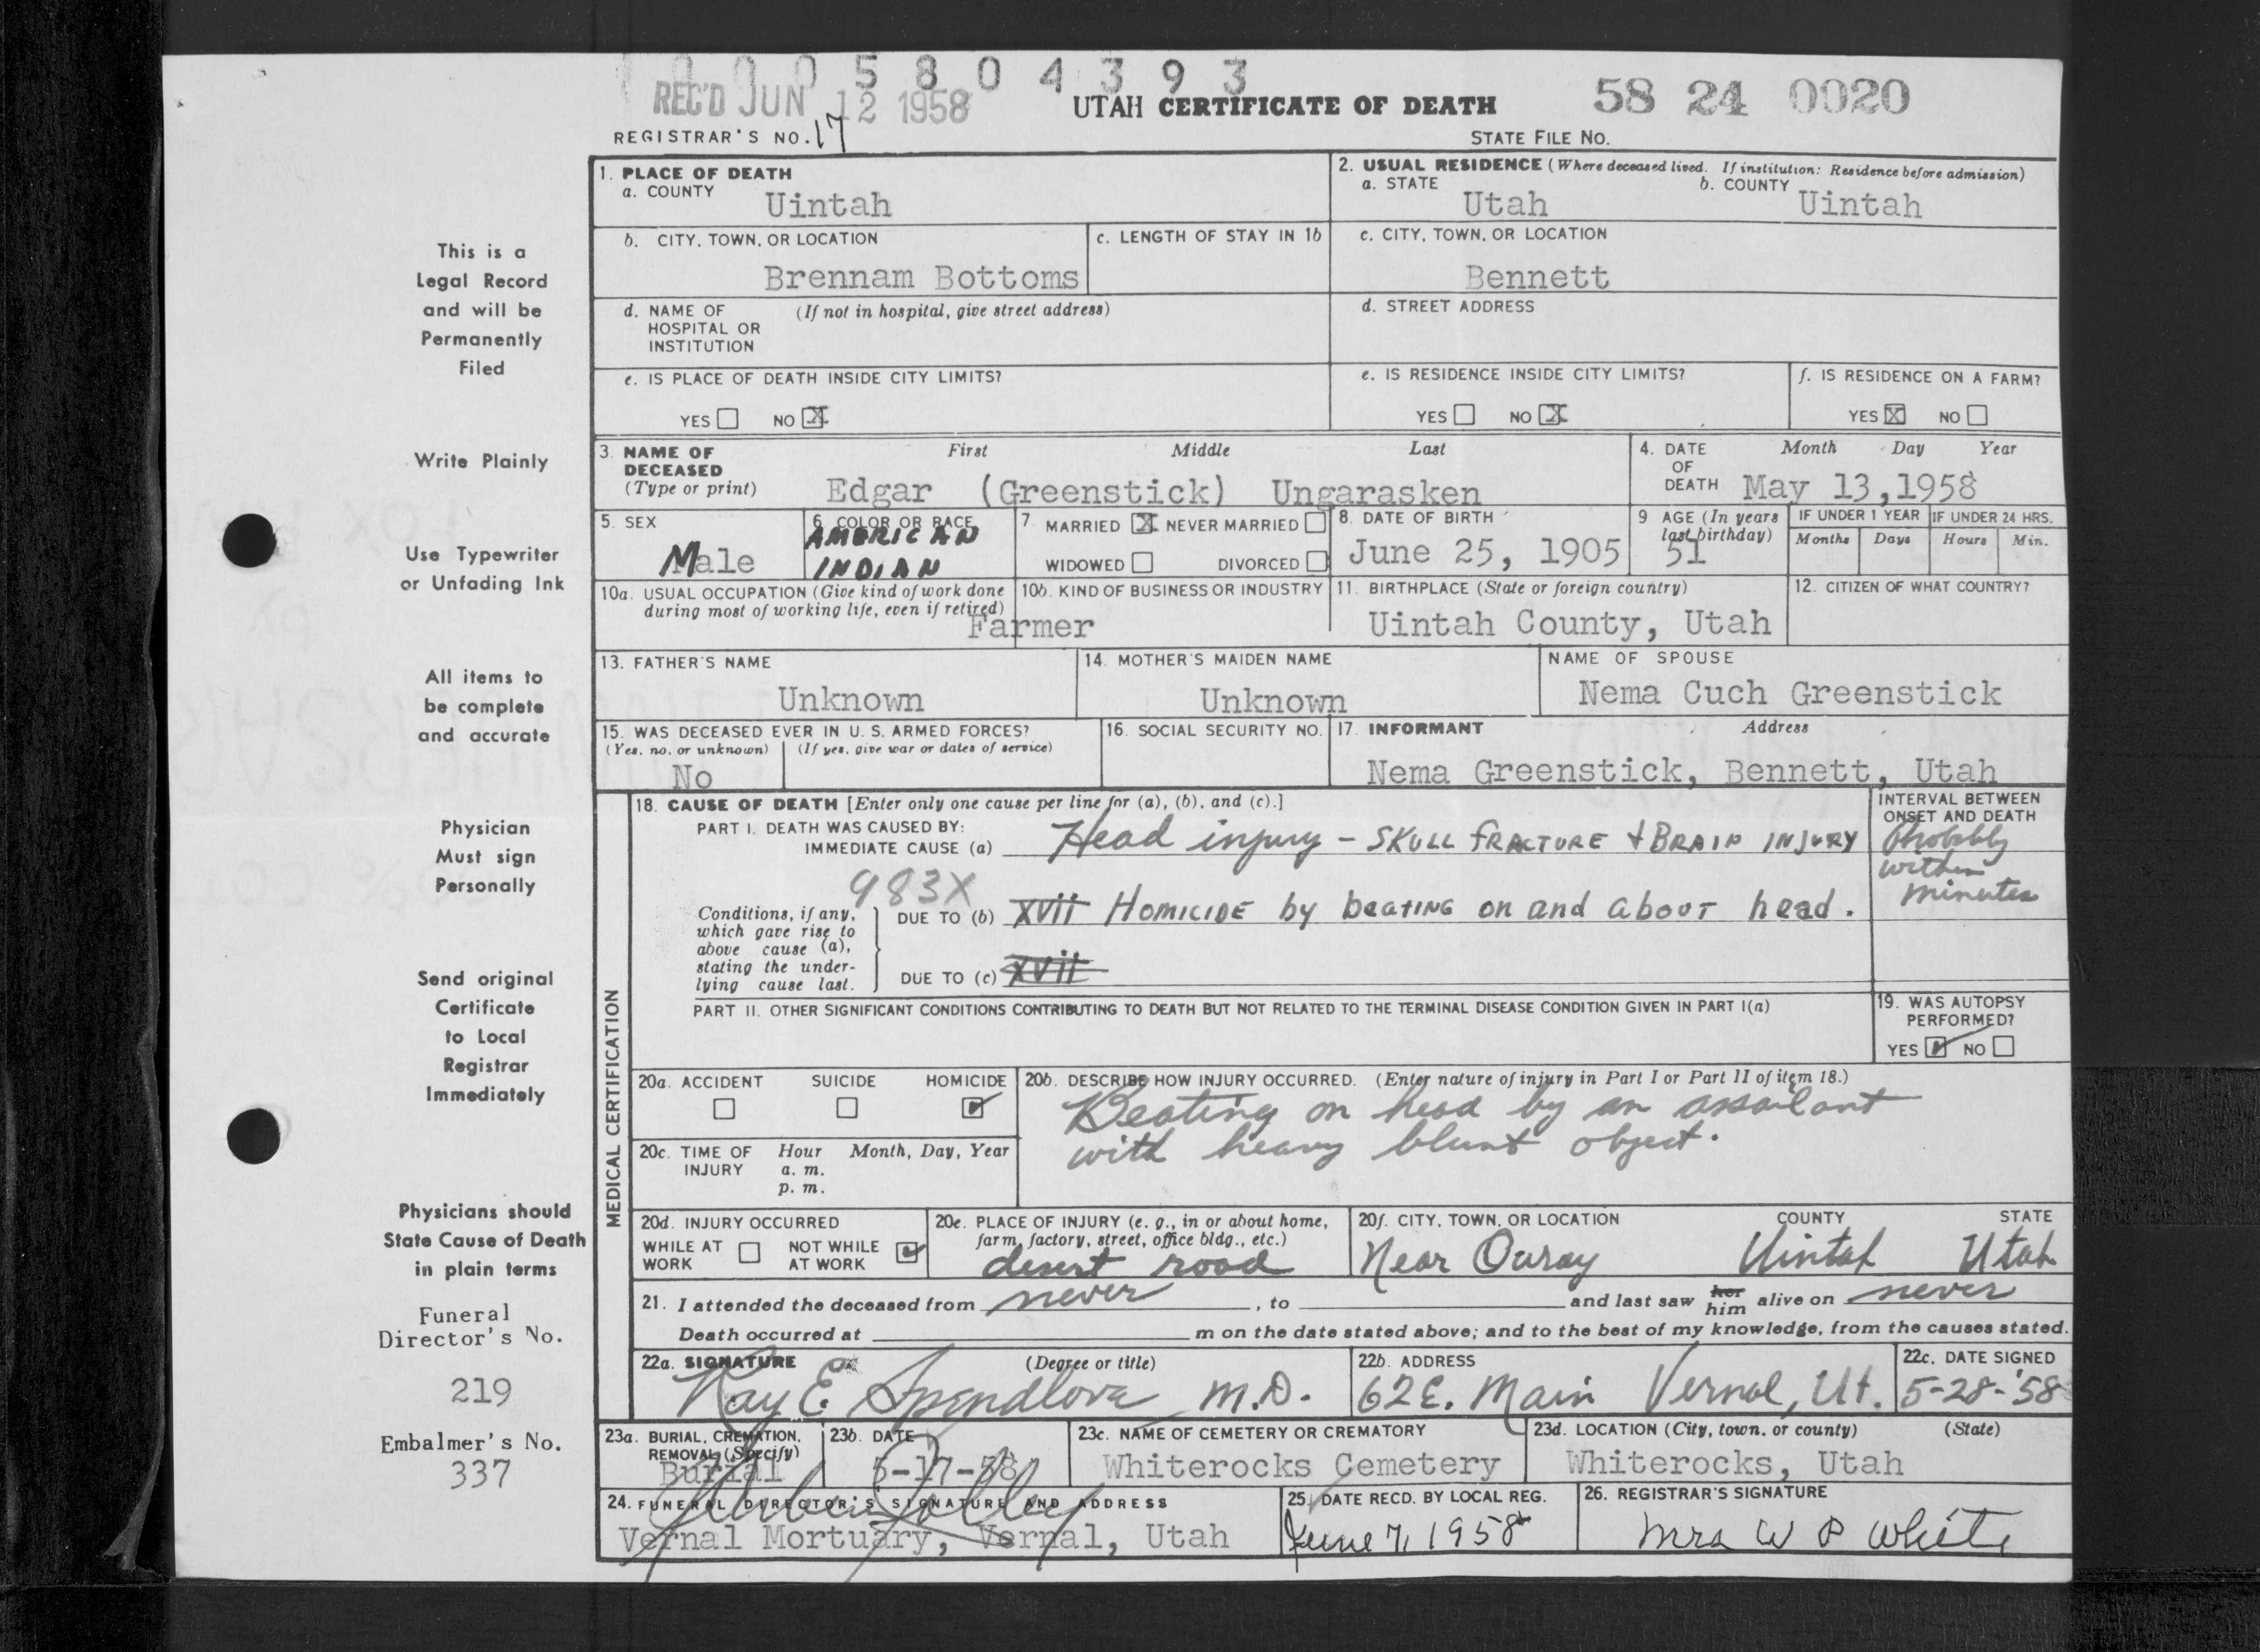 1 0 0 0 5 8 0 4 3 9 3
REC'D JUN 12 1958
UTAH CERTIFICATE OF DEATH
58 24 0020
REGISTRAR'S NO. 17
STATE FILE NO.
1. PLACE OF DEATH
a. COUNTY Uintah
2. USUAL RESIDENCE (Where deceased lived. If institution: Residence before admission)
a. STATE Utah b. COUNTY Uintah
b. CITY, TOWN, OR LOCATION Brennam Bottoms
c. LENGTH OF STAY IN 1b
c. CITY, TOWN, OR LOCATION Bennett
d. NAME OF HOSPITAL OR INSTITUTION (If not in hospital, give street address)
d. STREET ADDRESS
e. IS PLACE OF DEATH INSIDE CITY LIMITS?
YES NO X
e. IS RESIDENCE INSIDE CITY LIMITS?
YES NO X
f. IS RESIDENCE ON A FARM?
YES X NO
3. NAME OF DECEASED (Type or print)
First Middle Last
Edgar (Greenstick) Ungarasken
4. DATE OF DEATH Month Day Year
May 13, 1958
5. SEX Male
6 COLOR OR RACE AMERICAN INDIAN
7 MARRIED X NEVER MARRIED
WIDOWED DIVORCED
8. DATE OF BIRTH June 25, 1905
9 AGE (In years last birthday) 51
IF UNDER 1 YEAR Months Days
IF UNDER 24 HRS. Hours Min.
10a. USUAL OCCUPATION (Give kind of work done during most of working life, even if retired) Farmer
10b. KIND OF BUSINESS OR INDUSTRY
11. BIRTHPLACE (State or foreign country) Uintah County, Utah
12. CITIZEN OF WHAT COUNTRY?
13. FATHER'S NAME Unknown
14. MOTHER'S MAIDEN NAME Unknown
NAME OF SPOUSE Nema Cuch Greenstick
15. WAS DECEASED EVER IN U. S. ARMED FORCES?
(Yes, no, or unknown) (If yes, give war or dates of service)
No
16. SOCIAL SECURITY NO.
17. INFORMANT Address
Nema Greenstick, Bennett, Utah
MEDICAL CERTIFICATION
18. CAUSE OF DEATH [Enter only one cause per line for (a), (b), and (c).]
PART I. DEATH WAS CAUSED BY:
IMMEDIATE CAUSE (a) Head injury - SKULL FRACTURE + BRAIN INJURY
INTERVAL BETWEEN ONSET AND DEATH
Probably within minutes
983X
Conditions, if any, which gave rise to above cause (a), stating the underlying cause last.
DUE TO (b) XVII HOMICIDE by beating on and about head.
DUE TO (c) XVII
PART II. OTHER SIGNIFICANT CONDITIONS CONTRIBUTING TO DEATH BUT NOT RELATED TO THE TERMINAL DISEASE CONDITION GIVEN IN PART I(a)
19. WAS AUTOPSY PERFORMED?
YES NO
20a. ACCIDENT SUICIDE HOMICIDE
20b. DESCRIBE HOW INJURY OCCURRED. (Enter nature of injury in Part I or Part II of item 18.)
Beating on head by an assailant
with heavy blunt object.
20c. TIME OF INJURY Hour Month, Day, Year
a. m.
p. m.
20d. INJURY OCCURRED
WHILE AT WORK NOT WHILE AT WORK
20e. PLACE OF INJURY (e. g., in or about home, farm, factory, street, office bldg., etc.)
desert road
20f. CITY, TOWN, OR LOCATION COUNTY STATE
Near Ouray Uintah Utah
21. I attended the deceased from never, to and last saw her him alive on never
Death occurred at m on the date stated above; and to the best of my knowledge, from the causes stated.
22a. SIGNATURE (Degree or title)
Ray E. Spendlove M.D.
22b. ADDRESS
62 E. Main Vernal, Ut.
22c. DATE SIGNED
5-28-'58
23a. BURIAL, CREMATION, REMOVAL (Specify) Burial
23b. DATE 5-17-58
23c. NAME OF CEMETERY OR CREMATORY Whiterocks Cemetery
23d. LOCATION (City, town, or county) (State) Whiterocks, Utah
24. FUNERAL DIRECTOR'S SIGNATURE AND ADDRESS
Vernal Mortuary, Vernal, Utah
25. DATE RECD. BY LOCAL REG.
June 7, 1958
26. REGISTRAR'S SIGNATURE
Mrs W P White
This is a
Legal Record
and will be
Permanently
Filed
Write Plainly
Use Typewriter
or Unfading Ink
All items to
be complete
and accurate
Physician
Must sign
Personally
Send original
Certificate
to Local
Registrar
Immediately
Physicians should
State Cause of Death
in plain terms
Funeral
Director's No.
219
Embalmer's No.
337